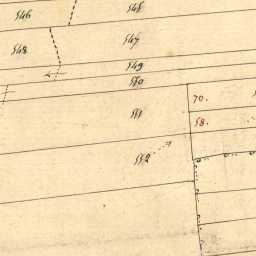 546
545
548
547
549
550
70.
551
58.
552